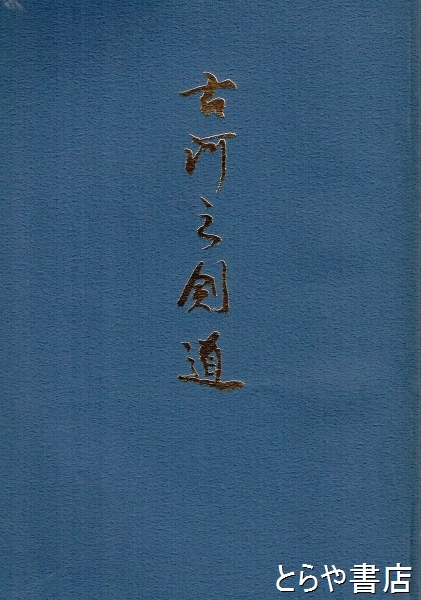 古河之剣道
とらや書店